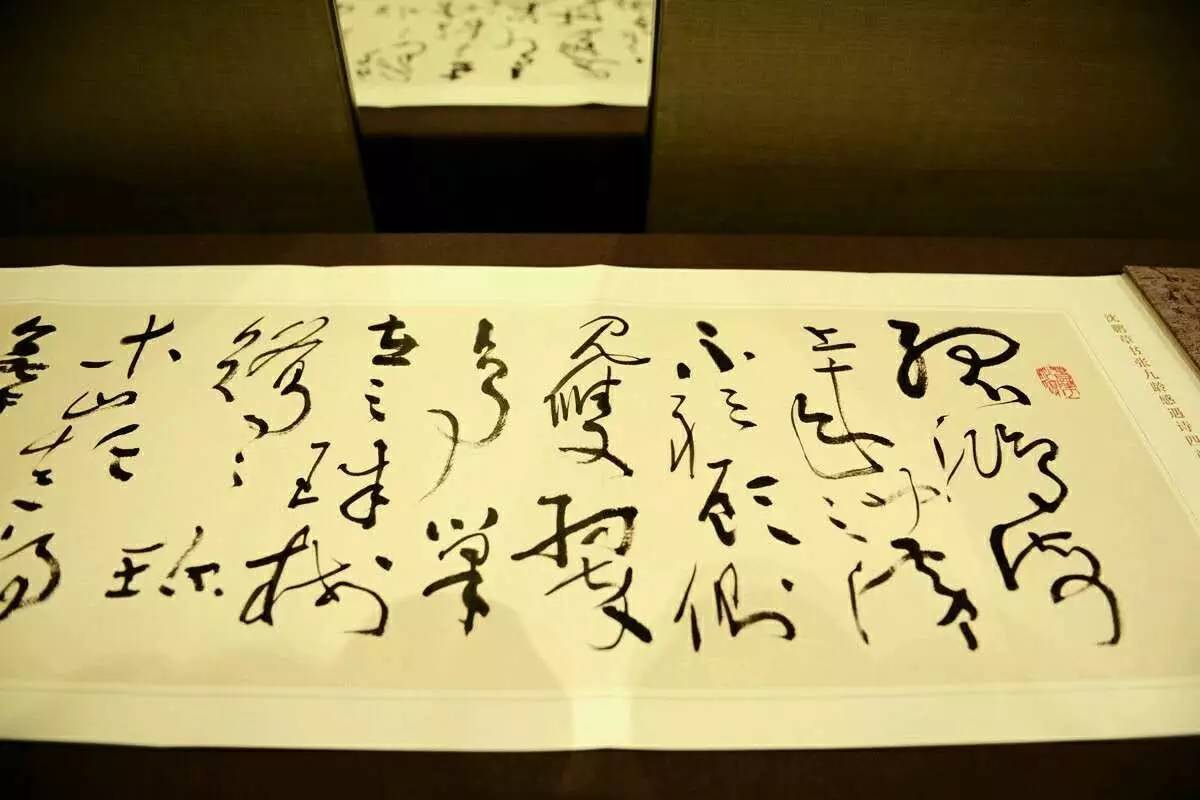 沈鹏草书张九龄感遇诗四
孤鸿海
上来池潢
不敢顾侧
见双翠
鸟巢
在三珠树
矫矫珍
木巅得
無